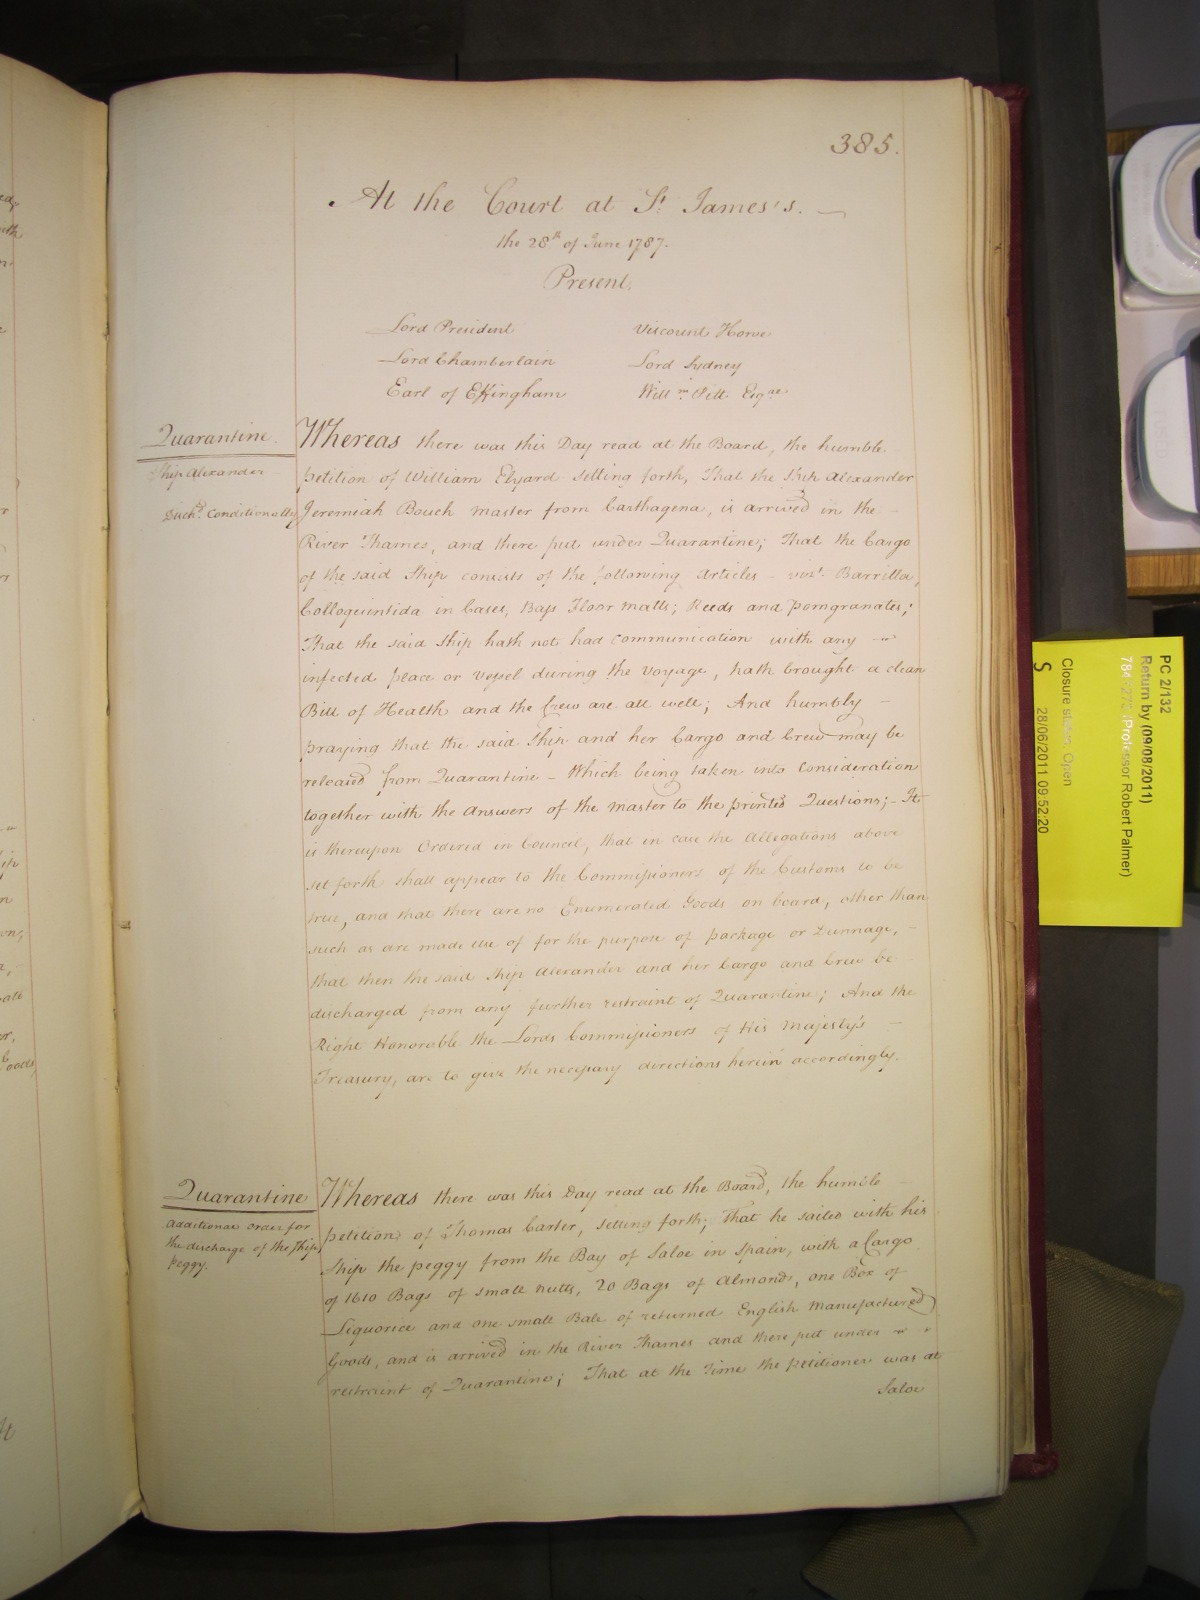 385.
At the Court at St. James's.
the 28th of June 1787.
Present.
Lord President
Viscount Howe
Lord Chamberlain
Lord Sydney
Earl of Effingham
Willm. Pitt Esqre
Quarantine.
Ship Alexander
Disch'd. Conditionally
Whereas there was this Day read at the Board, the humble
petition of William Elyard setting forth, That the Ship Alexander
Jeremiah Bouch master from Carthagena, is arrived in the
River Thames, and there put under Quarantine; That the Cargo
of the said Ship consists of the following Articles - vizt. Barrilla,
Colloquintida in Cases, Bass Floor Matts; Reeds and Pomgranates;
That the said Ship hath not had communication with any
infected place or Vessel during the voyage, hath brought a clean
Bill of Health and the Crew are all well; And humbly
praying that the said Ship and her Cargo and Crew may be
released from Quarantine - Which being taken into Consideration
together with the Answers of the master to the printed Questions; - It
is thereupon Ordered in Council, that in case the Allegations above
set forth shall appear to the Commissioners of the Customs to be
true, and that there are no Enumerated Goods on board, other than
such as are made use of for the purpose of package or Dunnage,
that then the said Ship Alexander and her Cargo and Crew be
discharged from any further restraint of Quarantine; And the
Right Honorable the Lords Commissioners of His Majesty's
Treasury, are to give the necessary directions herein accordingly.
Quarantine
Additional Order for
the discharge of the Ship
Peggy.
Whereas there was this Day read at the Board, the humble
petition of Thomas Carter, setting forth; That he sailed with his
Ship the Peggy from the Bay of Saloe in Spain, with a Cargo
of 1610 Bags of small nutts, 20 Bags of Almonds, one Box of
Liquorice and one small Bale of returned English Manufactured
Goods, and is arrived in the River Thames and there put under
restraint of Quarantine; That at the Time the petitioner was at
Saloe
PC 2/132
Return by (09/08/2011)
(Professor Robert Palmer)
Closure status: Open
S
28/06/2011 09:52:20